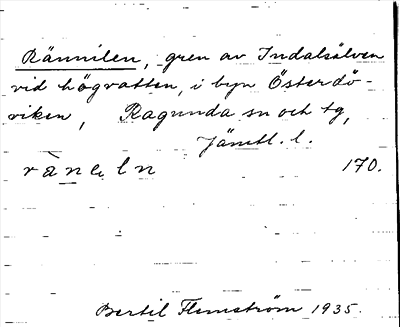 Rännilen, gren av Indalsälven
vid högvatten, i byn Österdö-
viken, Ragunda sn och tg,
Jämtl. l.
ràneln 170.
Bertil Flemström 1935.